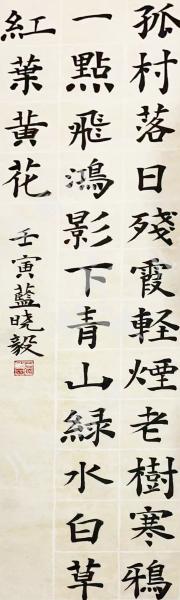 孤村落日殘霞軽煙老樹寒鴉
一點飛鴻影下青山緑水白草
紅葉黃花
壬寅藍曉毅